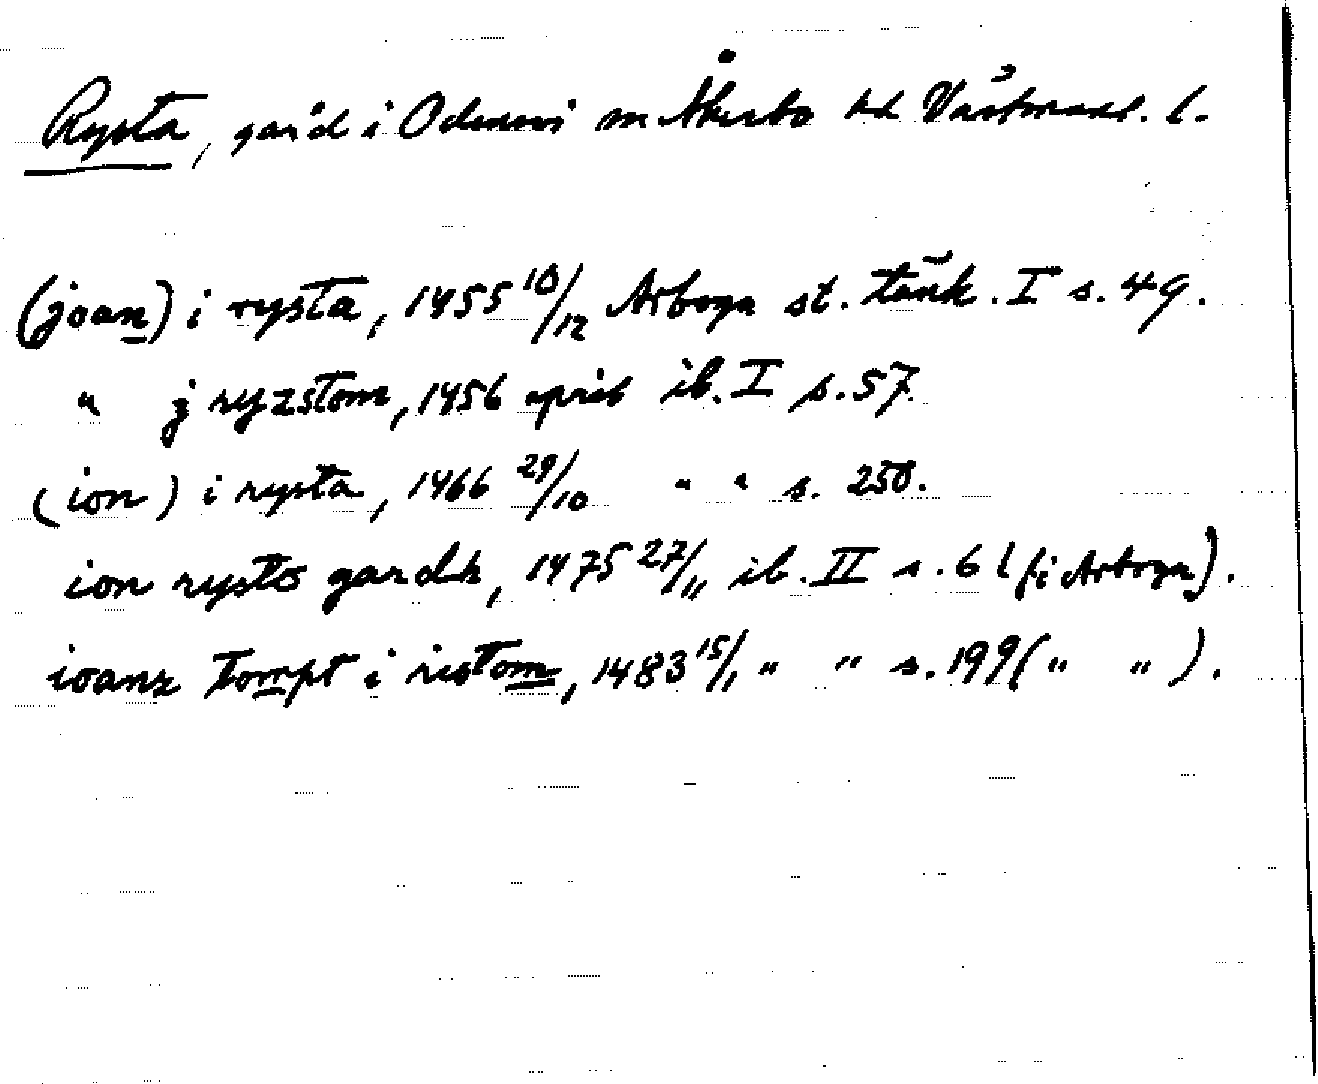 Rysta, gård i Odensvi sn Åkerbo hd Västmanl. l.
(joan) i rysta, 1455 10/12 Arboga st. tänk. I s. 49.
" j ryzstom, 1456 april ib. I s. 57
(ion) i rysta, 1466 29/10 " " s. 250.
ion rysto gardh, 1475 27/11 ib. II s. 61 (i Arboga).
ioanz tompt i ristom, 1483 15/1 " " s. 199 (" ").